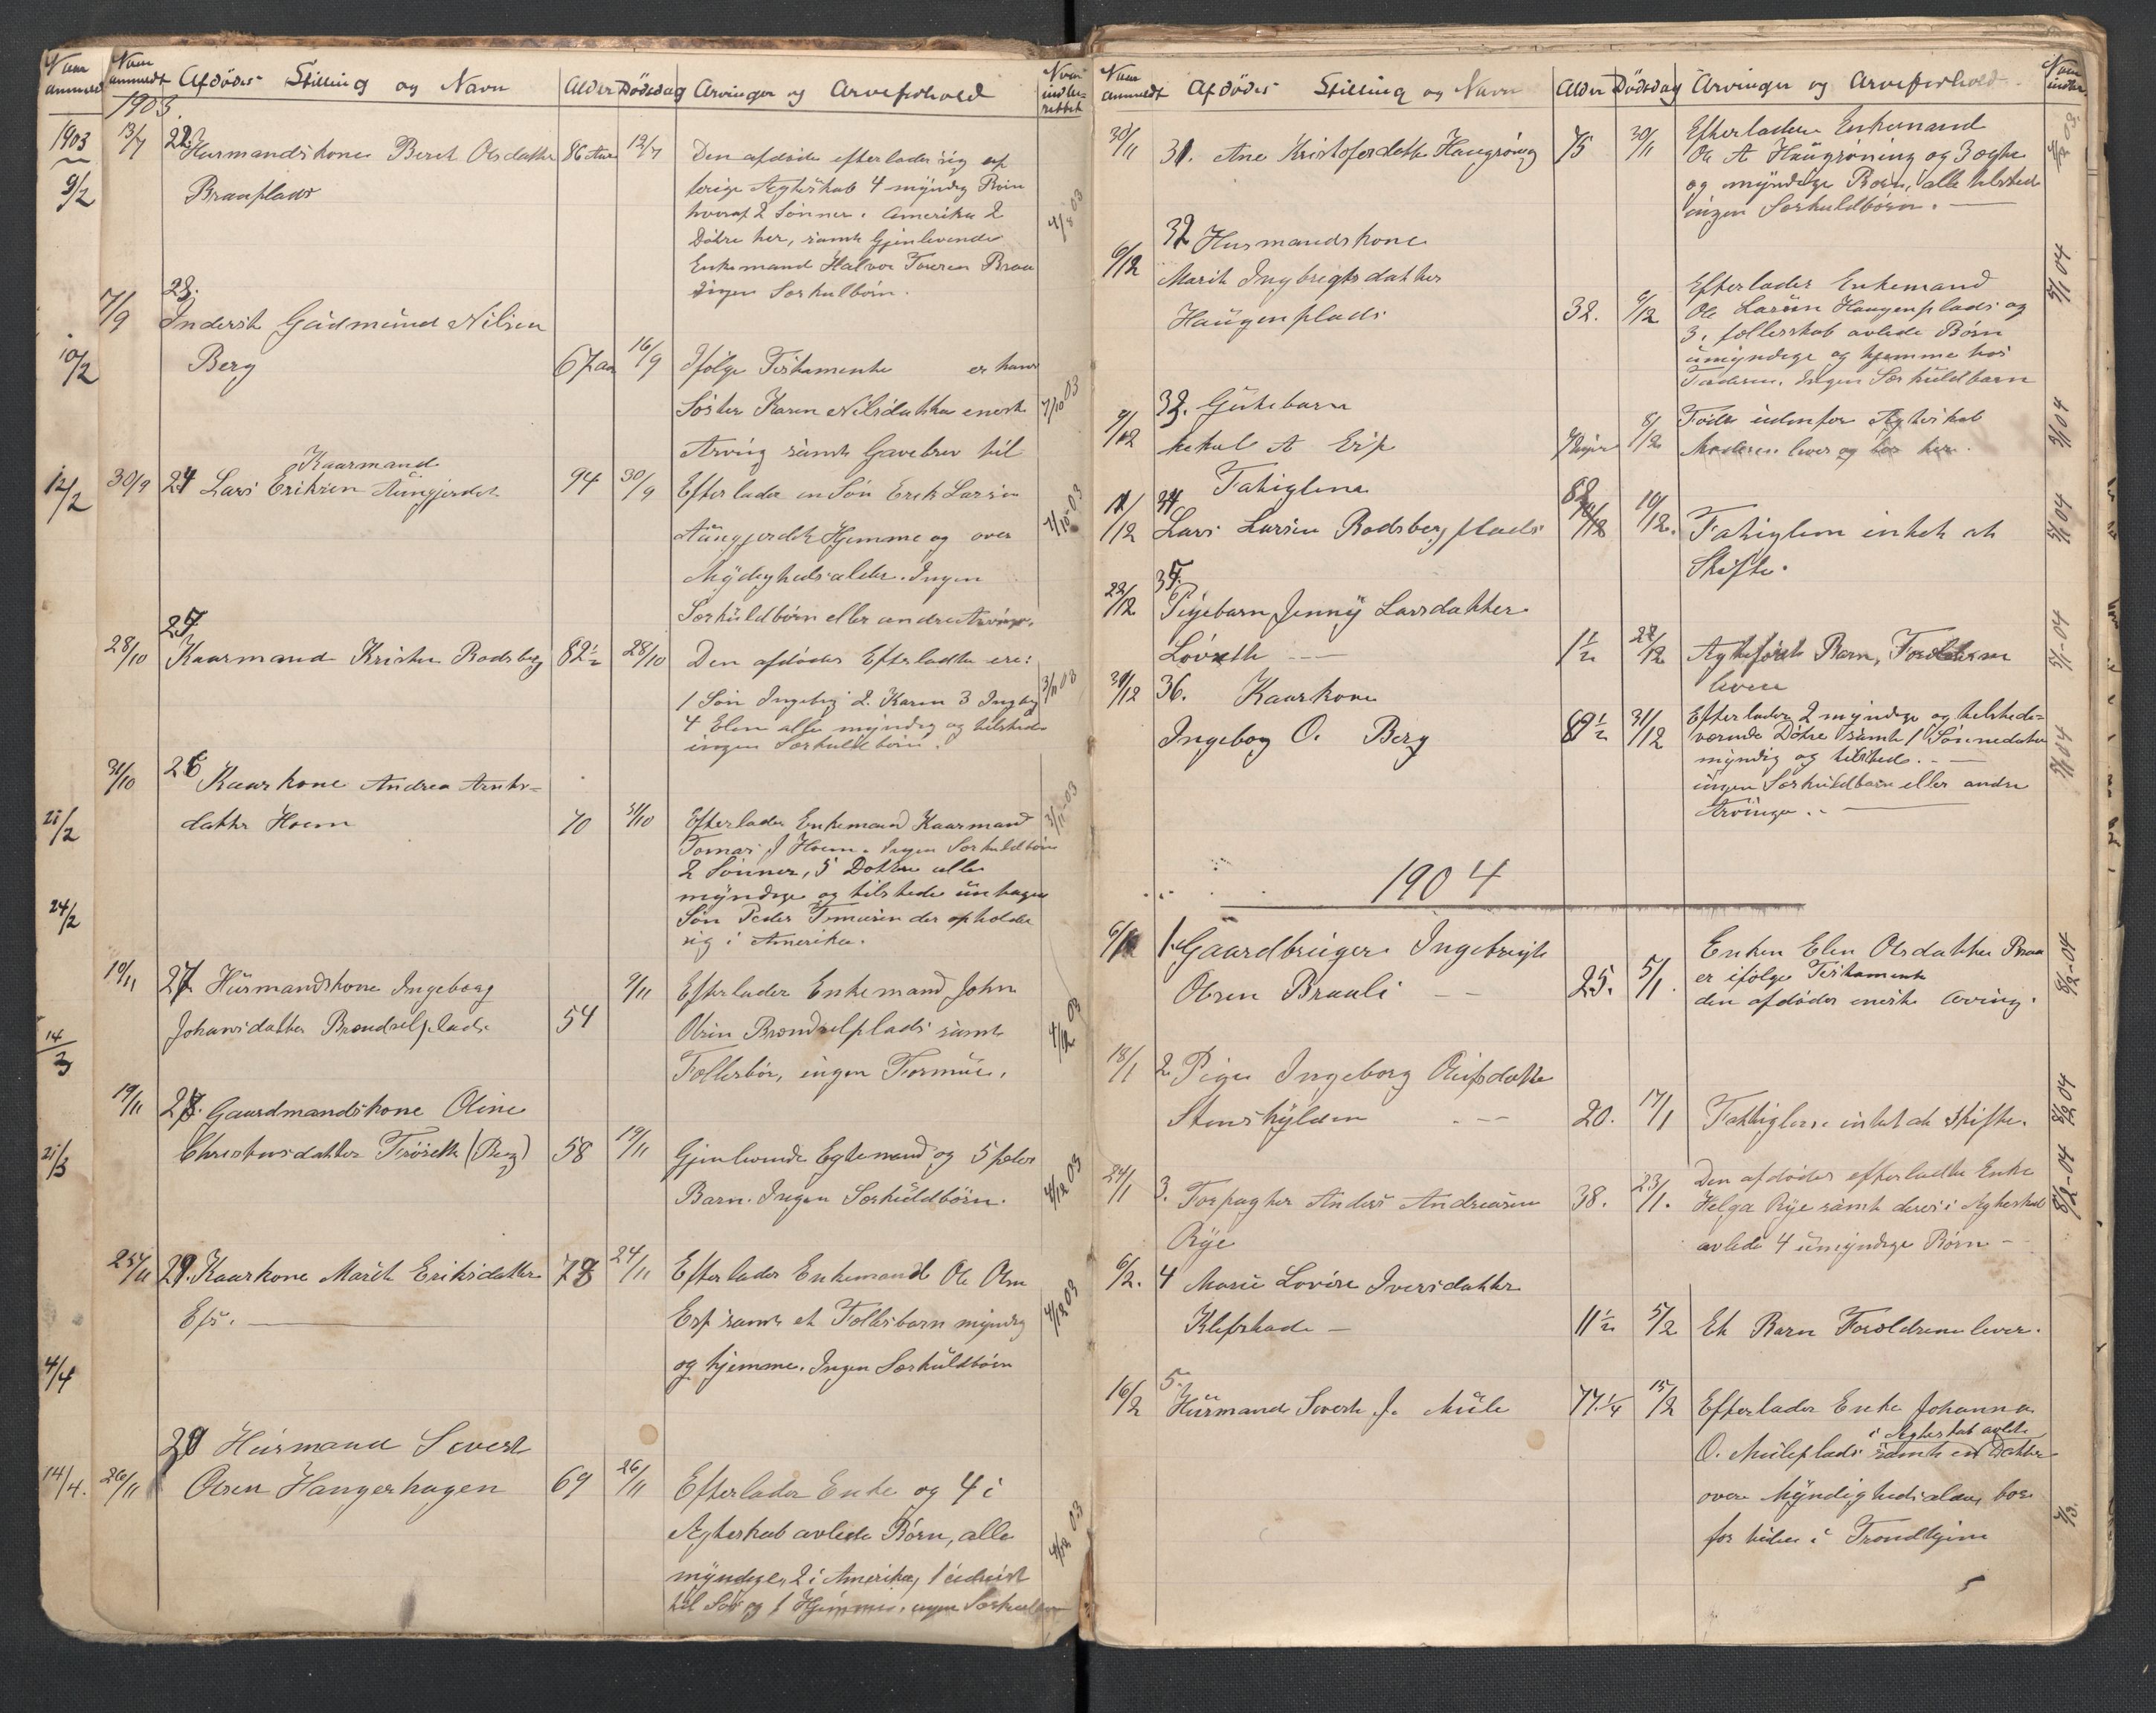 Naar anmeldt Afdödes Stilling og Navn Alder Dödsdag Arvinger og Arveforhold Naar indbe-rettet
1903
1903 13/7 22. Husmandskone Beret Olsdatter 86 Aar 12/7 Den afdöde efterlader sig af
9/2 Braaplads
4 myndig
hvoraf 2 Sönner i Amerika 2
Dötre her, samt Gjenlevende
Enkemand Halvor Braa
ingen Særkulbörn.
4/8 03
23.
7/9 Inderst Gudmund Nilsen
10/2 Berg 67 aar 16/9 Ifölge Testamente er hans
Söster Karen Nilsdatter eneste
7/10 03
Arving samt Gavebrev til
Kaarmand
12/2 30/9 24 Lars Eriksen Aungjerdet 94 30/9 Efterlader en Sön Erik Larsen
7/10 03
Aungjerdet Hjemme og over
Mydighedsalder. Ingen
Særkuldbörn eller andre Arvinge.
25
28/10 Kaarmand Krister Rodsberg 82 1/2 28/10 Den afdödes Efterladte ere:
1 Sön Ingebrig 2. Karen 3 Ingbog
3/11 03
4 Elen alle myndig og tilstede
ingen Særkuldbörn.
31/10 26 Kaarkone Andrea Arnts=
25/2 datter Hoem 70 31/10 Efterlader Enkemand Kaarmand
Tomas J Hoem. Ingen Særkuldbörn
2 Sönner, 5 Dottre alle
24/2 myndige og tilstede untagen
Sön Peder Tomasen der opholder
sig i Amerika.
3/11 03
10/11 27 Husmandskone Ingeborg 9/11 Efterlader Enkemand John
14/3 Johansdatter Brendselplads 54 Olsen Brendselplads samt
4/12 03
Fellesbör, ingen Formue.
19/11 28. Gaardmandskone Oline
21/3 Christensdatter Tröseth (Berg) 58 19/11 Gjenlevende Egtemand og 5 felles
Barn. Ingen Særkuldbörn.
4/12 03
25/11 29. Kaarkone Marit Eriksdatter 78 24/11 Efterlader Enkemand Ole Olsen
Erp. Erp samt et Fellesbarn myndig
4/12 03
4/4 og hjemme. Ingen Særkuldbörn
30 Husmand Sivert
14/4. 26/11 Olsen Haugerhagen 69 26/11 Efterlader Enke og 4 i
Ægteskab avlede Börn, alle
myndige, 2 i Amerika, 1 udreist
til Sös og 1 Hjemme, ingen Særkuldbörn
4/12 03
Naar anmeldt Afdödes Stilling og Navn Alder Dödsdag Arvinger og Arveforhold Naar indber.
30/11 31. Ane Kristofersdatter Haugröning 75 30/11 Efterladere Enkemand
Ole A Haugröning og 3 egte
og myndige Barn, alle tilstede
ingen Særkuldbörn.
32 Husmandskone
6/12 Marit Ingbrigtsdatter Efterlader Enkemand
Haugenplads 32. 6/12 Ole Larsen Haugenplads og
3 i fellesskab avlede Börn
5/1 04
umyndige og hjemme hos
Faderen. Ingen Særkuldbarn
33. Gutebarn Födt udenfor Ægteskab
9/12 A Erp 8/12 Moderen lever og bor her.
5/1 04
34. Fatiglem 82
11/12 Lars Larsen Rodsbergplads 10/12. Fatiglem intet at
Skifte.
5/1 04
35.
22/12 Pigebarn Jenny Larsdatter
Löveth 1 1/2 22/12 Ægteföret Barn, Foreldrene
lever
5/1-04
31/12 36. Kaarkone
Ingebog O. Berg 89 1/2 31/12 Efterlader 2 myndige og tilstede=
værende Dötre samt 1 Sönnedatter
myndig og tilstede.
ingen Særkuldbarn eller andre
Arvinge.
5/1 04
1904
6/1 1. Gaardbruger Ingebrigt Enken Elen Olsdatter Braa
Olsen Brauli 25. 5/1. er ifölge Testamente
den afdödes eneste Arving.
8/2-04
18/1 2. Pige Ingeborg Olufsdatter
Stenshylden 20. 17/1 Fattiglem intet at skifte.
8/2 04
24/1 3. Forpagter Anders Andreasen 38. 23/1. Den afdödes efterladte Enke
Rye Helga Rye samt deres i Ægteskab
avlede 4 umyndige Börn
8/2-04
6/2. 4 Marie Lovise Iversdatter
Klefstade 11 1/2 5/2 Et Barn Foreldrene lever.
5.
16/2 Husmand Sivert J. Mule 77 1/4 15/2 Efterlader Enke Johanna
i Ægteskab avlet
O. Muleplads samt en Datter
over Myndighedsalder, bor
for tiden i Trondhjem
7/3.
5